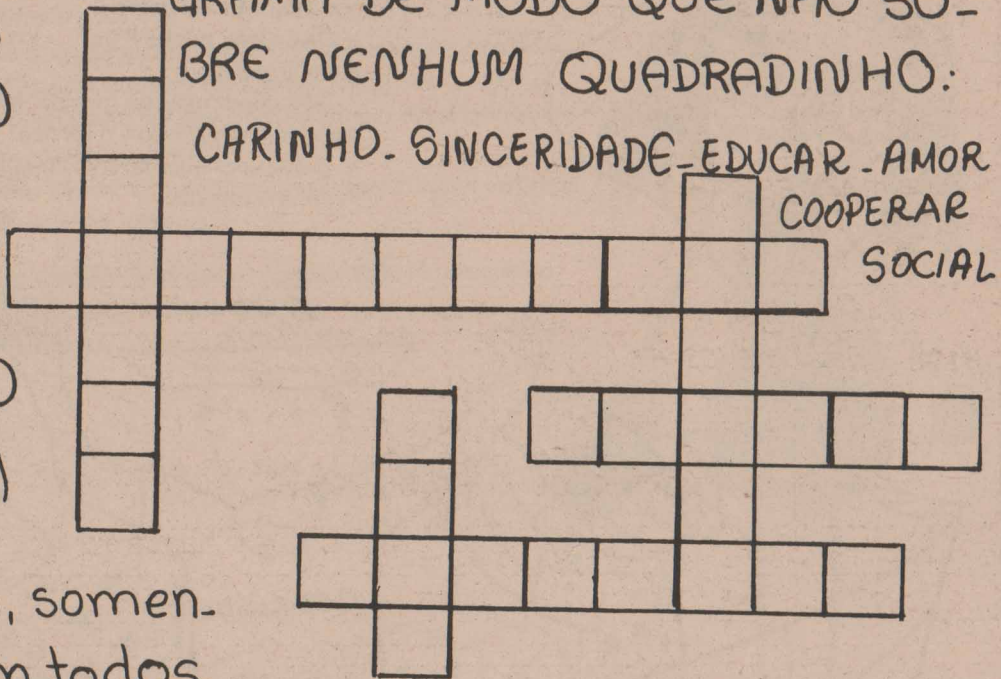 GRAMA DE MODO QUE NÃO SO-
BRE NENHUM QUADRADINHO:
CARINHO - SINCERIDADE - EDUCAR - AMOR
COOPERAR
SOCIAL
, somen-
todos